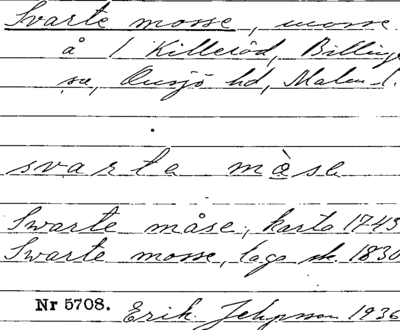 Svarte mosse, mosse
å 1 Killeröd, Billinge
sn, Onsjö hd, Malm. l.
svarta måse
Swarte måse, karta 1743
Swarte mosse, laga sk. 1830
Nr 5708. Erik Jeppsson 1936